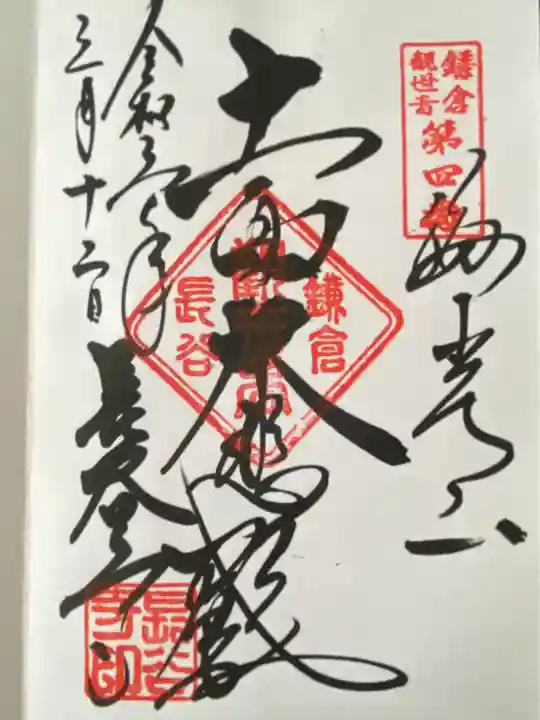 鎌倉
観世音
第四番
海光山
十一面大悲殿
鎌倉
長谷
令和三年
三月十二日
長谷寺
長谷
寺印